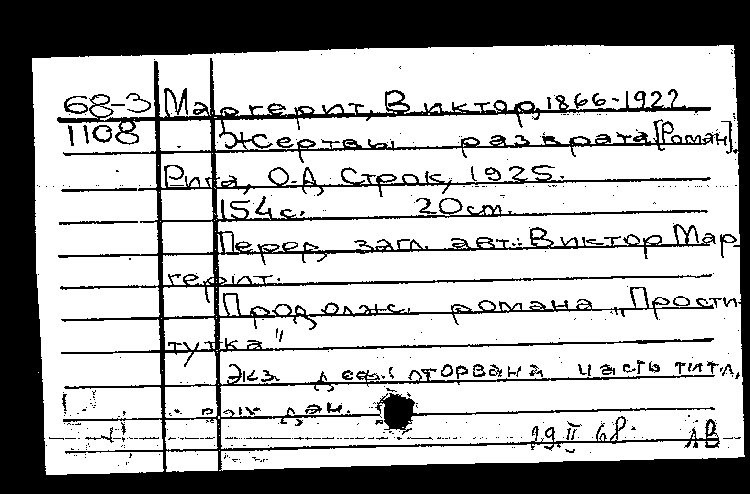 68-3 Маргерит, Виктор, 1866-1922
1108 Жертвы разврата. [Роман].
Рига, О.Д. Строк, 1925.
154с. 20cm.
Перед загл. авт.: Виктор Мар
герит.
Продолж. романа „Прости-
тутка"
Экз. деф.: оторвана часть титл,
вых дан.
29.II 68. ЛВ